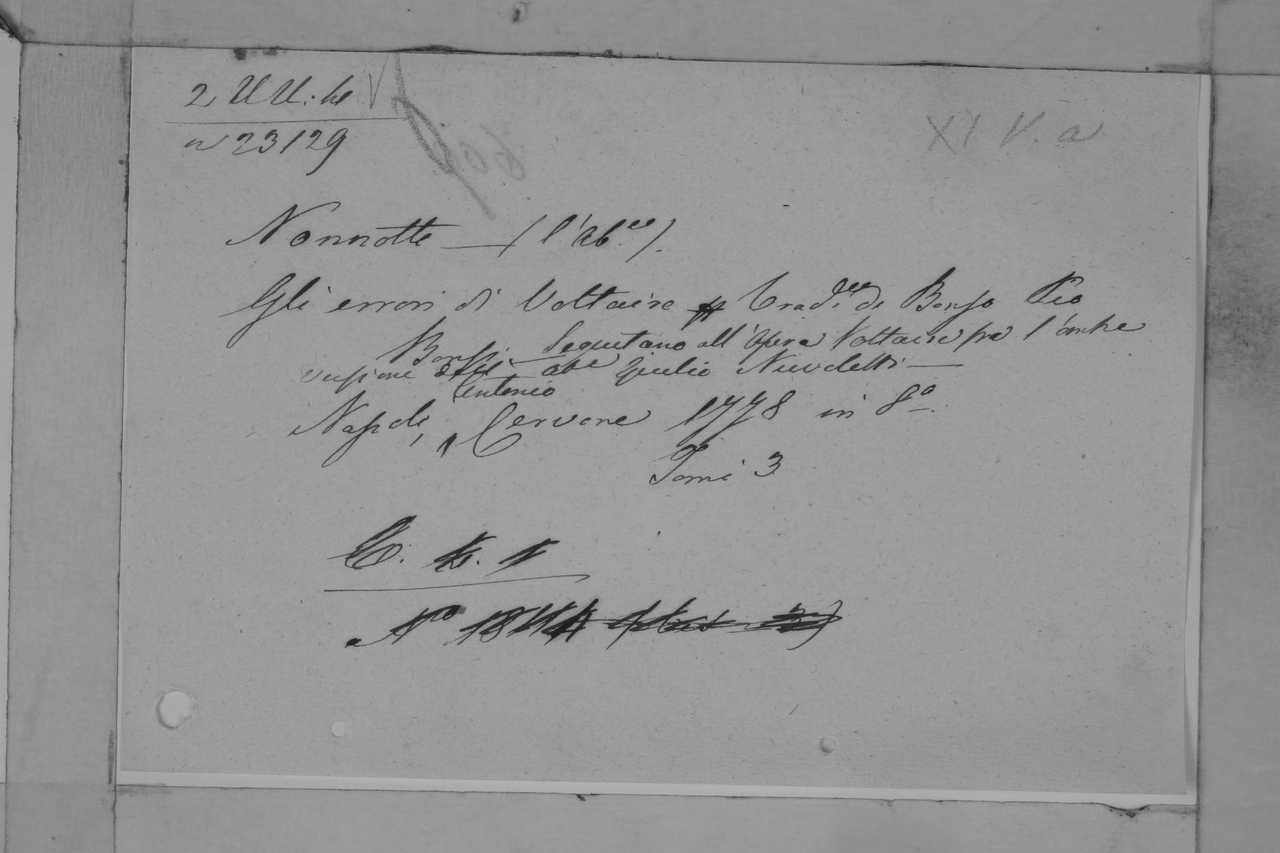 2 UU. he V
n 23129
XI V. a
Nonnotte — (l'Ab.)
Gli errori di Voltaire Trad. di Bonso Pio
Bonsi — Sequitano all'Opera Voltaire fra l'ombre
versione abe Giulio Nuvoletti —
Antonio
Napoli, Cervone 1778 in 8º.
Tomi 3
No 18